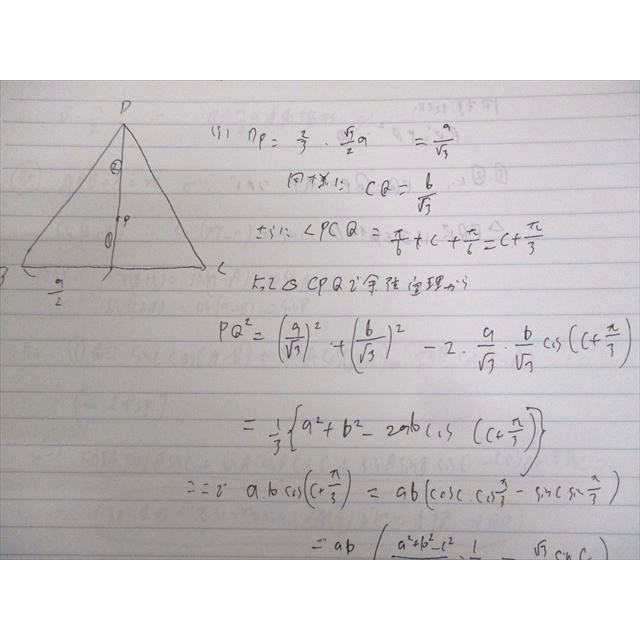 D
②
P
①
C
a/2
(1) DP = 2/3 · √3/2 a = a/√3
同様に CQ = b/√3
さらに ∠PCQ = π/6 + C + π/6 = C + π/3
よって △CPQで余弦定理から
PQ² = (a/√3)² + (b/√3)² - 2 · a/√3 · b/√3 cos(C + π/3)
= 1/3 {a² + b² - 2ab cos (C + π/3)}
ここで ab cos(C + π/3) = ab(cosC · cos π/3 - sinC sin π/3)
= ab (a²+b²-c² · 1 - √3 sin C)